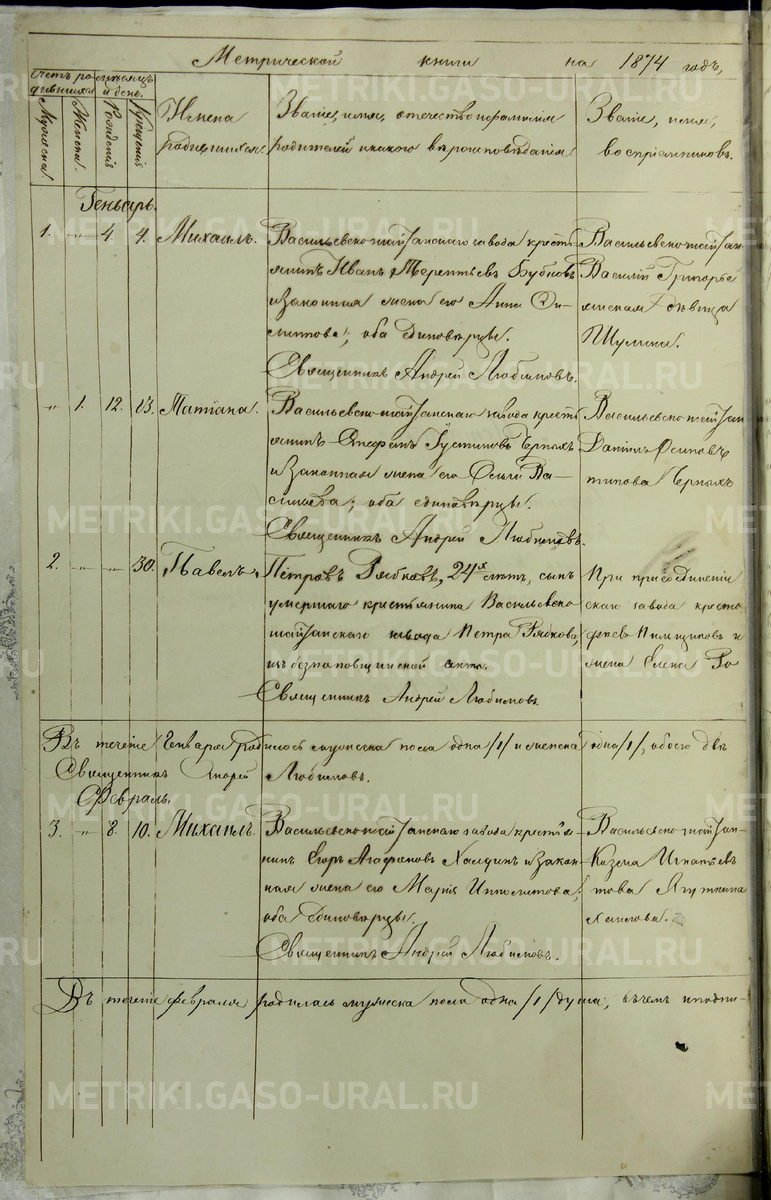 Метрической книги на 1874 годъ,
Счетъ родившихся
Мужеска.
Женска.
Месяцъ и день.
Рожденія
Крещенія
Имена родившихся.
Званіе, имя, отчество и фамилія
родителей и какого вѣроисповѣданія.
Званіе, имя,
воспріемниковъ.
Генварь.
1. „ 4 4. Михаилъ.
Васильевско-шайтанскаго завода кресть
янинъ Иванъ Терентьевъ Бубновъ
и законная жена его Анна
оба единовѣрцы.
Священникъ Андрей Любимовъ.
Васильевско-шайтан
Василій Григорье
дѣвица
Шулина.
„ 1. 12. 13. Татіана.
Васильевско-шайтанскаго завода кресть
янинъ Стефанъ Іустиновъ Черныхъ
и законная жена его Ва
сильева; оба единовѣрцы.
Священникъ Андрей Любимовъ.
Васильевско-шайтан
Даніилъ Осиповъ
Черныхъ
2. „ „ 30. Павелъ,
Петровъ Рябковъ, 24х лѣтъ, сынъ
умершаго крестьянина Васильевско
шайтанскаго завода Петра Рябкова,
изъ безпоповщинской секты.
Священникъ Андрей Любимовъ.
При присоединеніи
скаго завода кресть
и
жена Елена
Въ теченіе Генваря родилось мужеска пола одна /1/ и женска одна /1/, обоего двѣ
Священникъ Андрей Любимовъ.
Февраль.
3. „ 8. 10. Михаилъ.
Васильевско-шайтанскаго завода крестья
нинъ Егоръ Агафоновъ и закон
ная жена его Марія Ипполитова;
оба единовѣрцы.
Священникъ Андрей Любимовъ.
Васильевско-шайтан
Козьма Игнатьевъ
това
Въ теченіе февраля родилась мужеска пола одна /1/ душа; въ чемъ и подпи-
METRIKI.GASO-URAL.RU